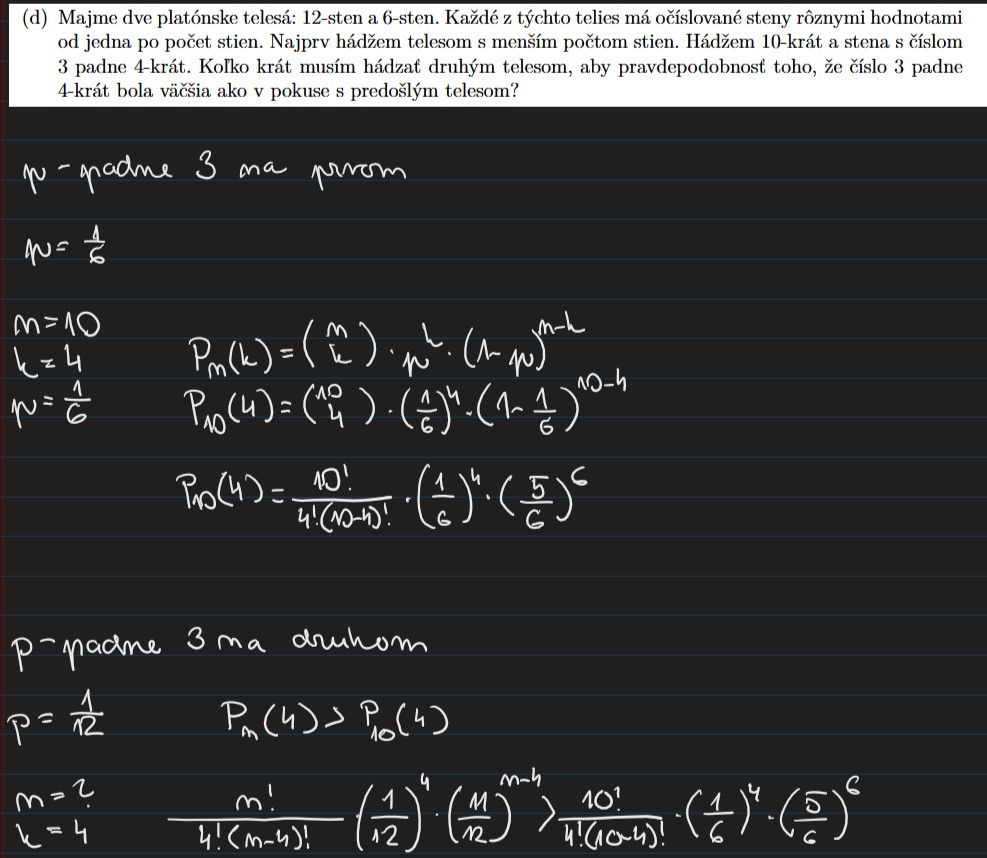 (d) Majme dve platónske telesá: 12-sten a 6-sten. Každé z týchto telies má očíslované steny rôznymi hodnotami
od jedna po počet stien. Najprv hádžem telesom s menším počtom stien. Hádžem 10-krát a stena s číslom
3 padne 4-krát. Koľko krát musím hádzať druhým telesom, aby pravdepodobnosť toho, že číslo 3 padne
4-krát bola väčšia ako v pokuse s predošlým telesom?
p - padne 3 na prvom
p = 1/6
n = 10
k = 4
p = 1/6
P_n(k) = (n k) · p^k · (1-p)^{n-k}
P_10(4) = (10 4) · (1/6)^4 · (1 - 1/6)^{10-4}
P_10(4) = 10!/(4!(10-4)!) · (1/6)^4 · (5/6)^6
p - padne 3 na druhom
p = 1/12
P_n(4) > P_10(4)
n = ?
k = 4
n!/(4!(n-4)!) (1/12)^4 · (11/12)^{n-4} > 10!/(4!(10-4)!) · (1/6)^4 · (5/6)^6